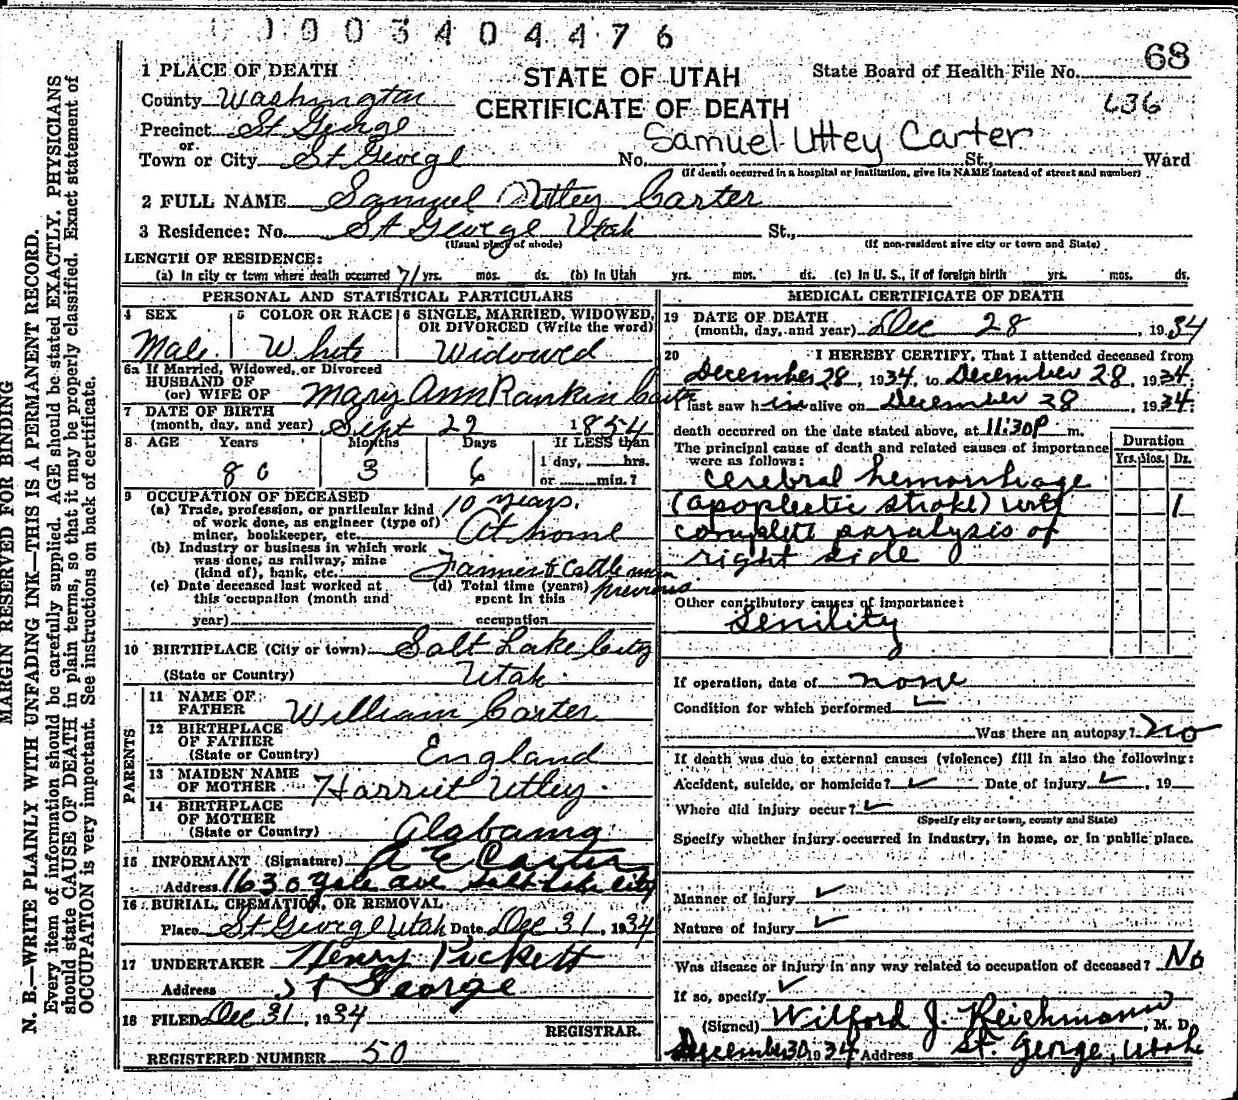 0003404476
68
1 PLACE OF DEATH
STATE OF UTAH
State Board of Health File No.
County Washington
CERTIFICATE OF DEATH
636
Precinct St George
or
Samuel Uttey Carter
Town or City St George No. St., Ward
(If death occurred in a hospital or institution, give its NAME instead of street and number)
2 FULL NAME Samuel Uttey Carter
3 Residence: No. St George Utah St.,
(Usual place of abode) (If non-resident give city or town and State)
LENGTH OF RESIDENCE:
(a) In city or town where death occurred 71 yrs. mos. ds. (b) In Utah yrs. mos. ds. (c) In U. S., if of foreign birth yrs. mos. ds.
PERSONAL AND STATISTICAL PARTICULARS
4 SEX 5 COLOR OR RACE 6 SINGLE, MARRIED, WIDOWED, OR DIVORCED (Write the word)
Male White Widowed
6a If Married, Widowed, or Divorced
HUSBAND OF
(or) WIFE OF Mary Ann Rankin Carter
7 DATE OF BIRTH
(month, day, and year) Sept 22 1854
8 AGE Years Months Days If LESS than
80 3 6 1 day, hrs.
or min.?
9 OCCUPATION OF DECEASED
(a) Trade, profession, or particular kind 10 years.
of work done, as engineer (type of) At home
miner, bookkeeper, etc.
(b) Industry or business in which work
was done, as railway, mine
(kind of), bank, etc. Farmer & Cattle man
(c) Date deceased last worked at (d) Total time (years) previous
this occupation (month and spent in this
year) occupation
10 BIRTHPLACE (City or town) Salt Lake City
(State or Country) Utah
PARENTS
11 NAME OF
FATHER William Carter
12 BIRTHPLACE
OF FATHER
(State or Country) England
13 MAIDEN NAME
OF MOTHER Harriet Utley
14 BIRTHPLACE
OF MOTHER
(State or Country) Alabama
15 INFORMANT (Signature) A E Carter
Address 1630 Yale ave Salt Lake City
16 BURIAL, CREMATION, OR REMOVAL
Place St George Utah Date Dec 31, 1934
17 UNDERTAKER Henry Pickett
Address St George
18 FILED Dec 31, 1934
REGISTRAR.
REGISTERED NUMBER 50
MEDICAL CERTIFICATE OF DEATH
19 DATE OF DEATH
(month, day, and year) Dec 28, 1934
20 I HEREBY CERTIFY, That I attended deceased from
December 28, 1934, to December 28, 1934.
I last saw him alive on December 28, 1934.
death occurred on the date stated above, at 11:30P m.
The principal cause of death and related causes of importance
were as follows:
Duration
Yrs. Mos. Ds.
Cerebral hemorrhage
(apoplectic stroke) with 1
complete paralysis of
right side
Other contributory causes of importance:
Senility
If operation, date of none
Condition for which performed
Was there an autopsy? No
If death was due to external causes (violence) fill in also the following:
Accident, suicide, or homicide? Date of injury , 19
Where did injury occur?
(Specify city or town, county and State)
Specify whether injury occurred in industry, in home, or in public place.
Manner of injury
Nature of injury
Was disease or injury in any way related to occupation of deceased? No
If so, specify
(Signed) Wilford J. Reichmann, M. D.
December 30 1934 Address St. George, Utah
MARGIN RESERVED FOR BINDING
N. B.—WRITE PLAINLY WITH UNFADING INK—THIS IS A PERMANENT RECORD.
Every item of information should be carefully supplied. AGE should be stated EXACTLY. PHYSICIANS
should state CAUSE OF DEATH in plain terms, so that it may be properly classified. Exact statement of
OCCUPATION is very important. See instructions on back of certificate.